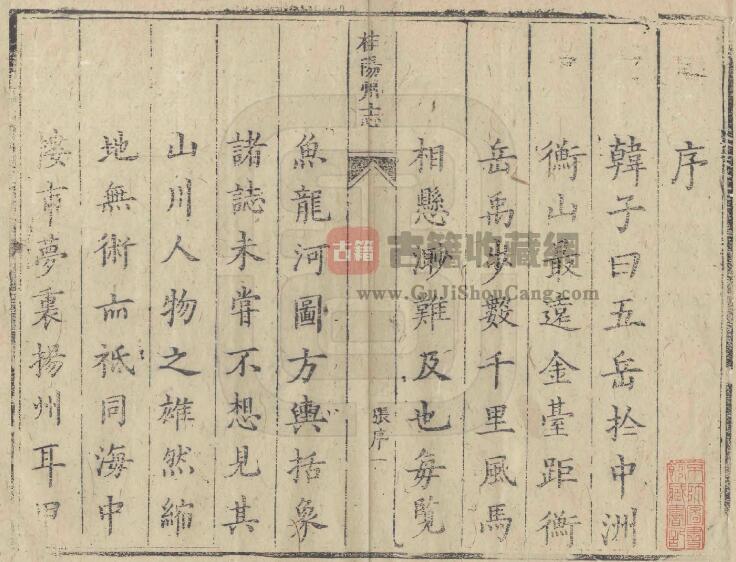 序
韓子曰五岳扵中洲
衡山最遠金臺距衡
岳禹步數千里風馬
相懸渺難及也每覽
桂陽州志
張序一
魚龍河圖方輿括象
諸誌未嘗不想見其
山川人物之雄然縮
地無術而祗同海中
蜃市夢裏揚州耳
古籍
古籍收藏網
www.GuJiShouCang.com